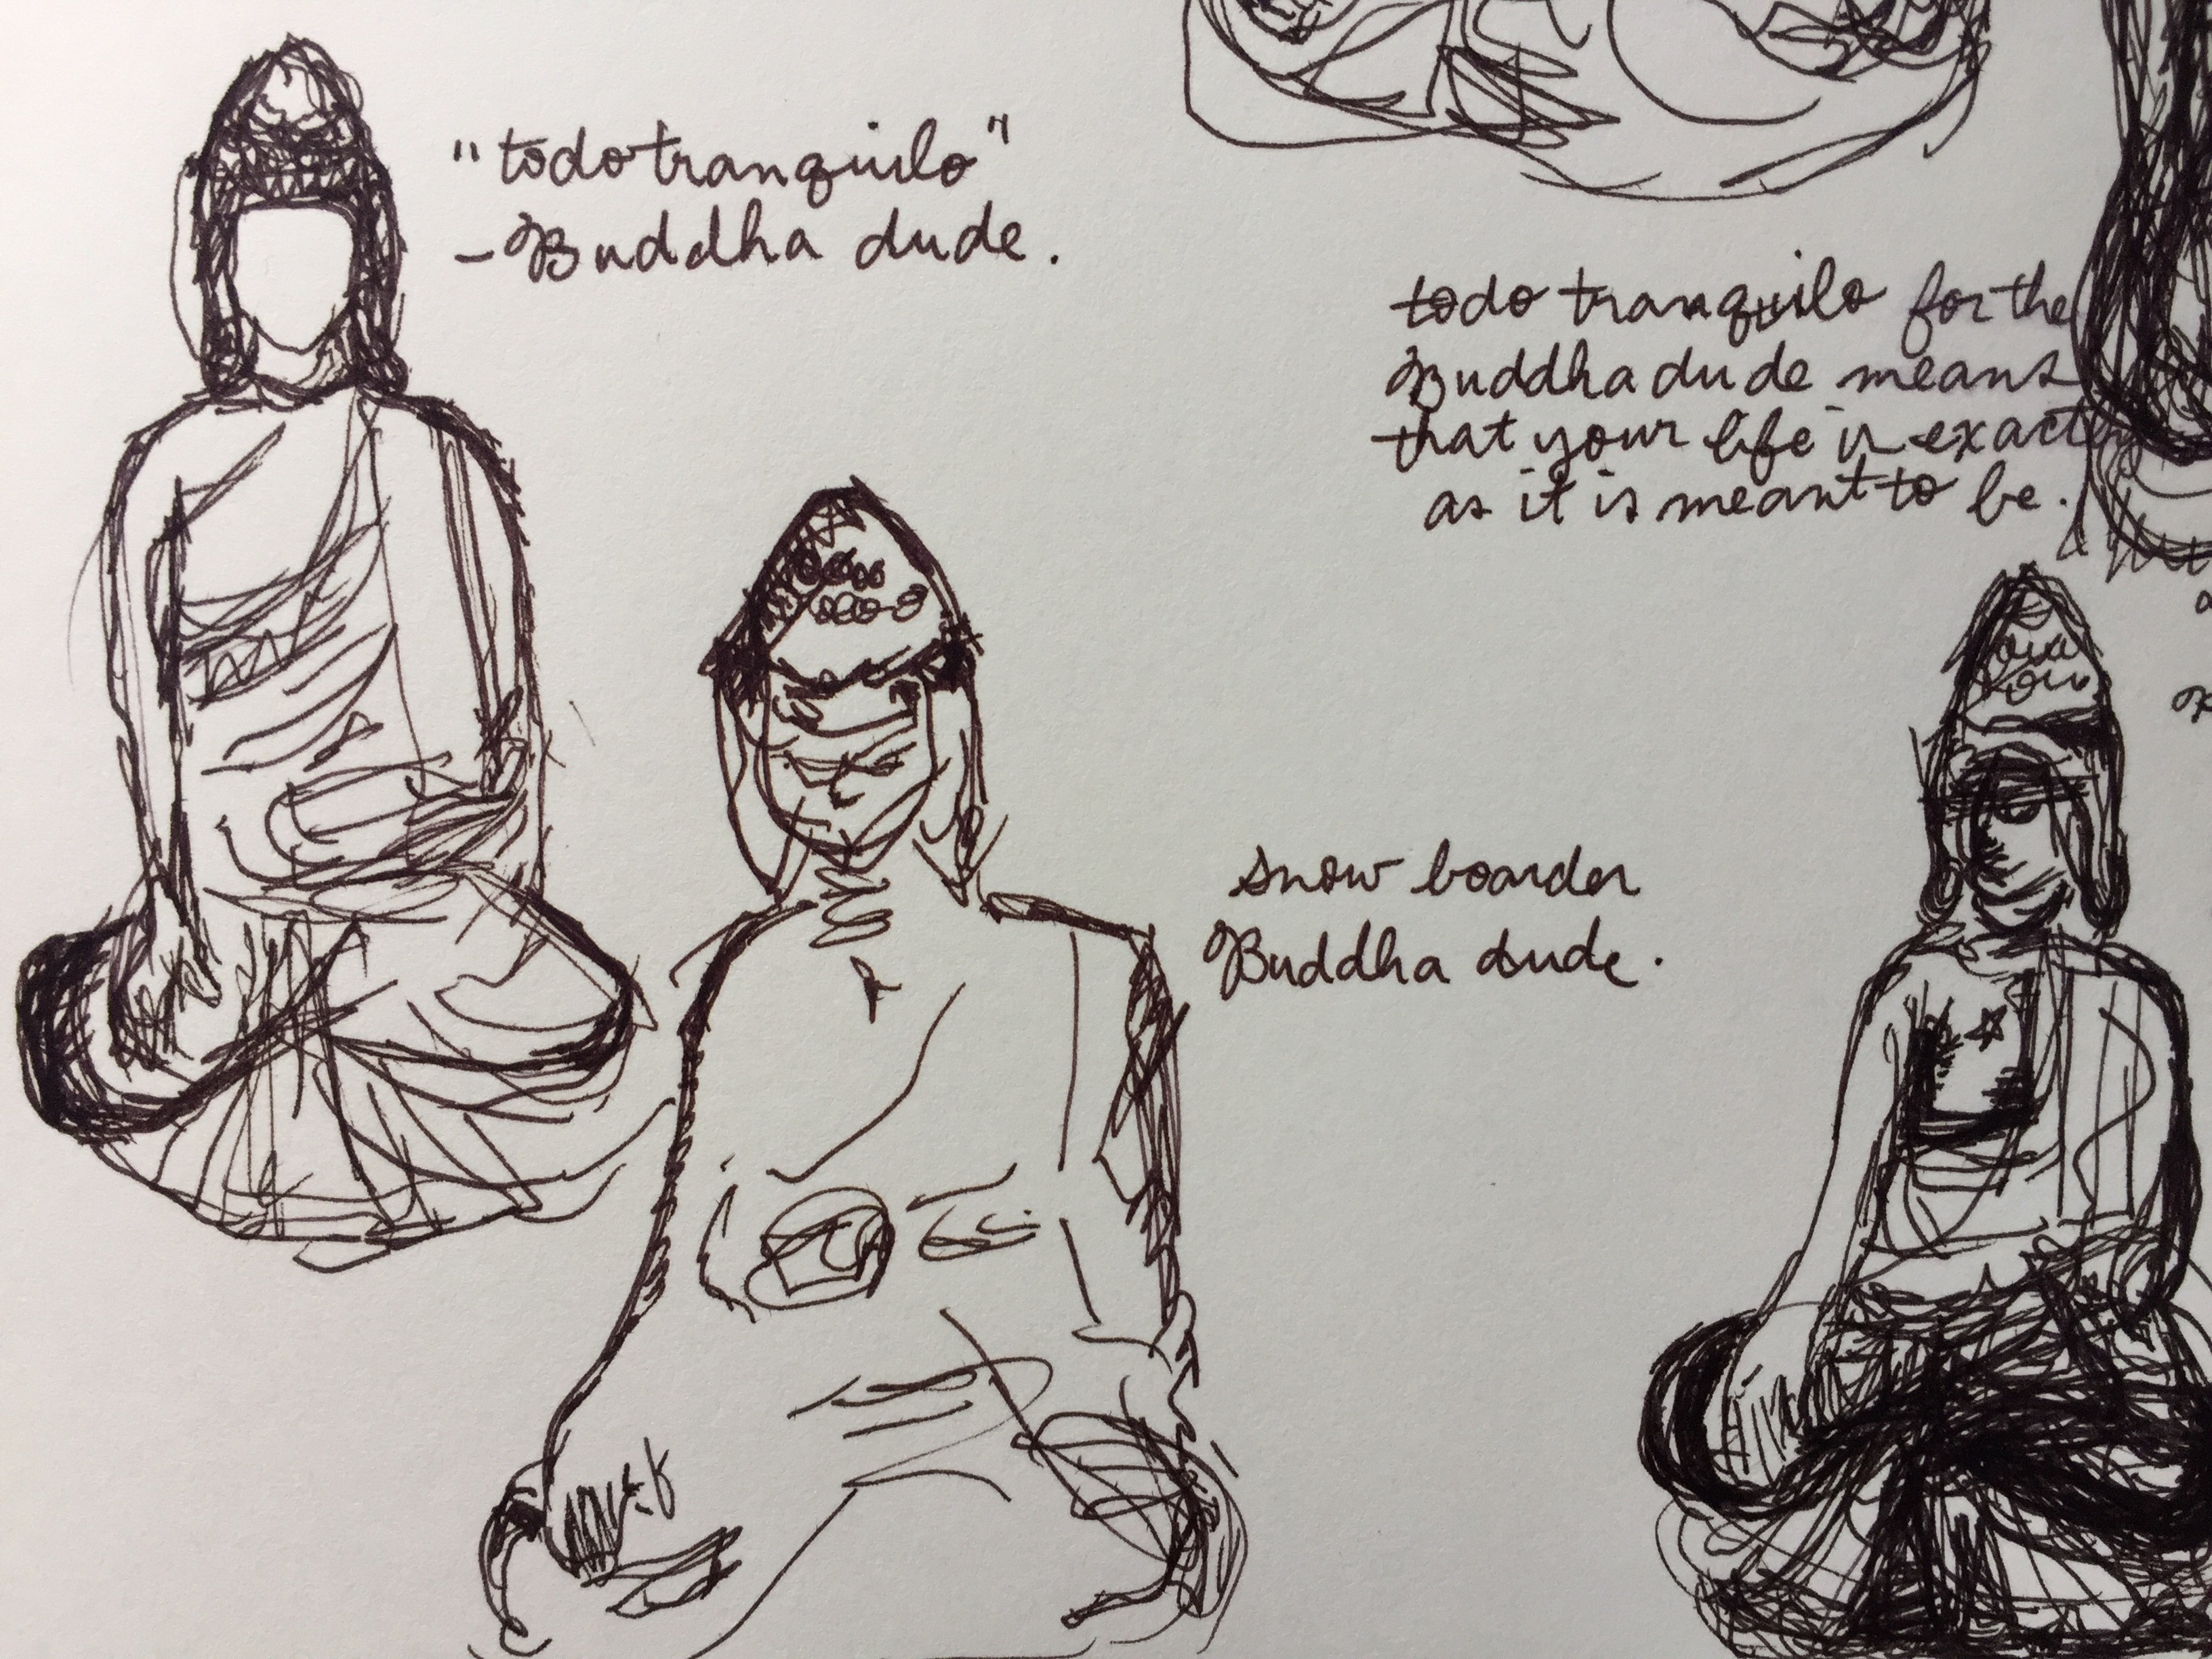 "todo tranquilo"
- Buddha dude.
todo tranquilo for the
Buddha dude means
that your life is exact
as it is meant to be.
snow boarder
Buddha dude.